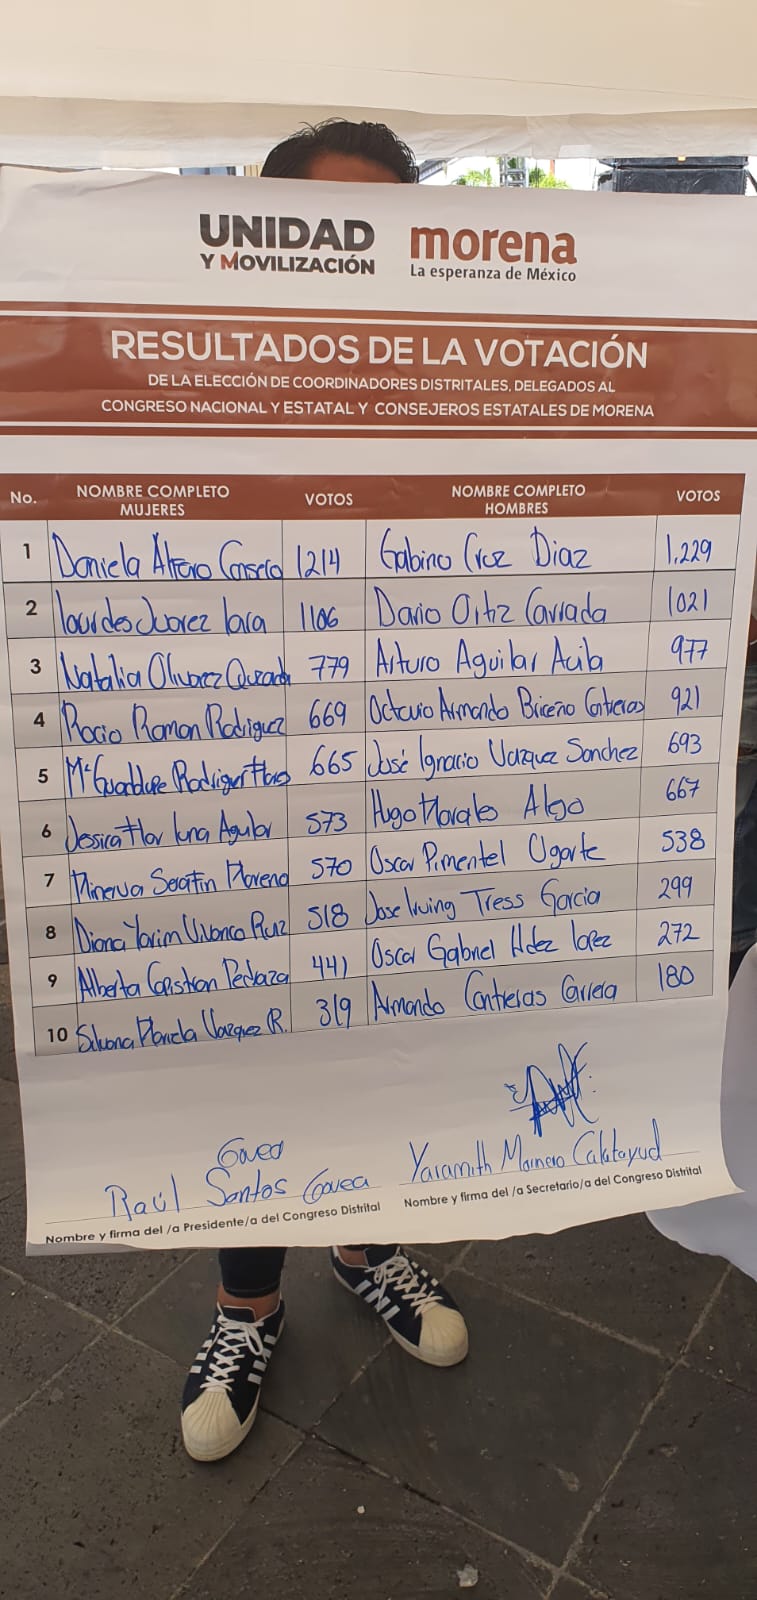 UNIDAD
Y MOVILIZACIÓN
morena
La esperanza de México
RESULTADOS DE LA VOTACIÓN
DE LA ELECCIÓN DE COORDINADORES DISTRITALES, DELEGADOS AL
CONGRESO NACIONAL Y ESTATAL Y CONSEJEROS ESTATALES DE MORENA
No. NOMBRE COMPLETO MUJERES VOTOS NOMBRE COMPLETO HOMBRES VOTOS
1 Daniela 1214 Gabino Cruz Diaz 1,229
2 Lourdes Juarez Lara 1106 Dario Ortiz Carrada 1021
3 Natalia Olivarez 779 Arturo Aguilar 977
4 Rocio Ramon Rodriguez 669 Octavio Armando Briceño Contreras 921
5 Rodriguez 665 José Ignacio Vazquez Sanchez 693
6 Jessica Flor Luna Aguilar 573 Hugo Morales 667
7 Minerva Serafin Moreno 570 Oscar Pimentel Ugarte 538
8 Diana Yarim Vivanco Ruiz 518 Jose Irving Tress Garcia 299
9 Alberta Capistran Pedraza 441 Oscar Gabriel Hdez Lopez 272
10 Silvana Mariela Vazquez R. 319 Armando Contreras Carrera 180
Govea
Raúl Santos Govea
Yaramith
Nombre y firma del /a Presidente/a del Congreso Distrital
Nombre y firma del /a Secretario/a del Congreso Distrital